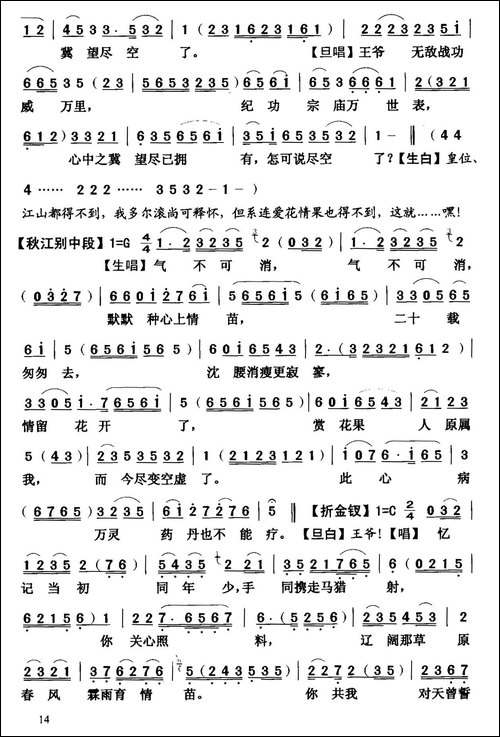 1 2 | 4 5 3 3 · 5 3 2 | 1 ( 2 3 1 6 2 3 1 6 1 ) | 2 2 2 3 2 3 5 i |
冀 望尽 空 了。 【旦唱】王爷 无敌战功
6 6 5 3 5 ( 2 4 ) | 3 5 2 3 2 3 5 ( 6 5 | 6 5 6 i | 3 6 5 3 6 6 6 1 | 2 ( 3 2 1
威 万里， 纪功 宗庙万 世表，
6 1 2 ) 3 3 2 1 | 6 3 5 6 5 6 i | 3 5 i 6 5 3 5 3 2 | 1 - ‖ ( 4 4
心中之冀 望尽已拥 有，怎可说尽空 了？【生白】皇位、
4 …… 2 2 2 …… 3 5 3 2 - 1 - )
江山都得不到，我多尔滚尚可释怀，但系连爱花情果也得不到，这就……嘿！
【秋江别中段】1=G 4/4 1 · 2 3 2 3 5 2 ( 0 3 2 ) | 1 · 2 3 2 3 5 2
【生唱】气 不可 消， 气 不可 消，
( 0 3 2 7 ) | 6 6 0 i 2 7 6 i | 5 ( 6 5 6 i 5 6 i 6 5 ) | 3 3 0 5 6 5
默默 种心上情 苗， 二十 载
6 i | 5 ( 6 5 6 1 5 6 5 ) | 6 0 i 6 5 4 3 | 2 · ( 3 2 3 2 1 6 1 2 ) |
匆匆 去， 沈 腰消瘦更寂 寥，
3 3 0 5 i · 7 6 5 6 i | 5 ( 3 5 2 3 5 6 1 5 ) | 6 0 i 6 5 4 3 | 2 1 2 3
情留 花 开 了， 赏 花果 人 原属
5 ( 4 3 ) | 2 3 5 3 5 3 2 | 1 ( 2 1 2 3 1 2 1 ) | i 0 7 6 · i 6 5 | 3
我， 而 今尽变空虚 了。 此 心 病
( 6 7 6 5 ) 3 2 3 5 | 6 i 2 7 2 7 6 | 5 - ‖ 【折金钗】1=C 2/4 0 3 2 |
万灵 药 丹也不 能 疗。【旦白】王爷！【唱】忆
1 2 3 5 2 ( 7 6 ) | 5 4 3 5 2 2 1 | 3 2 1 7 6 2 7 6 5 | 6 ( 0 2 1 5
记 当 初 同 年 少，手 同携走马猎 射，
6 2 1 5 6 ) 1 | 2 1 2 3 2 7 · 6 5 6 7 | 6 · ( 5 2 5 6 ) | 2 3 5 4 5 3 2
你 关心照 料， 辽 阔那草 原
2 3 2 1 | 3 7 6 2 7 6 | 5 ( 2 4 3 5 3 5 ) | 2 2 7 2 ( 3 5 ) | 2 3 2 7
春风 霖雨育 情 苗。 你 共我 对天曾誓
14